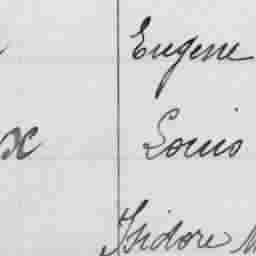 Eugene
x Louis
Isidore M